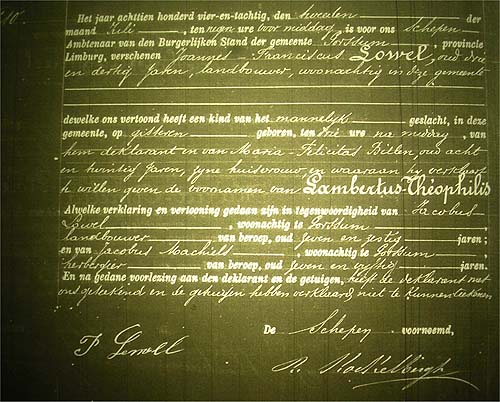 Het jaar achttien honderd vier-en-tachtig, den tweeden der
maand Juli, ten negen ure voor middag, is voor ons Schepen
Ambtenaar van den Burgerlijken Stand der gemeente, provincie
Limburg, verschenen Joannes Franciscus Lowel, oud drie
en dertig Jaren, landbouwer, woonachtig in deze gemeente
dewelke ons vertoond heeft een kind van het mannelyk geslacht, in deze
gemeente, op gisteren geboren, ten drie ure na middag, van
hem deklarant en van Maria-Felicitas Billen, oud acht
en twintig Jaren, zyne huisvrouw en waaraan hy verklaart
te willen geven de voornamen van Lambertus-Theophilis
Alwelke verklaring en vertooning gedaan zijn in tegenwoordigheid van Jacobus
Lowel, woonachtig te
landbouwer van beroep, oud zeven en zestig jaren;
en van Jacobus Machiels, woonachtig te
herbergier van beroep, oud zeven en jaren.
En na gedane voorlezing aan den deklarant en de getuigen, heeft de deklarant met
ons geteekend en de getuigen hebben verklaard niet te kunnen teekenen
De Schepen voornoemd,